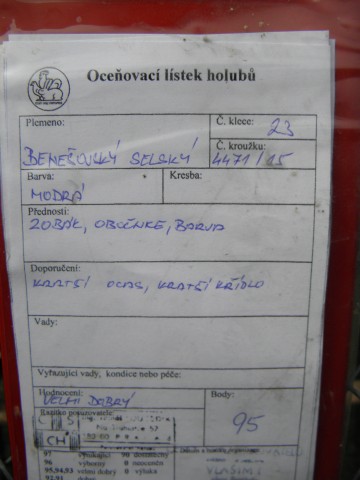 Oceňovací lístek holubů
Plemeno:
BENEŠOVSKÝ SELSKÝ
Č. klece: 23
Č. kroužku:
4471/15
Barva:
MODRÁ
Kresba:
Přednosti:
ZOBÁK, OBOČNICE, BARVA
Doporučení:
KRATŠÍ OCAS, KRATŠÍ KŘÍDLO
Vady:
Vyřazující vady, kondice nebo péče:
Hodnocení:
VELMI DOBRÝ
Body:
95
Razítko posuzovatele:
CH
97 vynikající 90 dostatečný
96 výborný 0 neoceněn
95,94,93 velmi dobrý 0 výluka
92,91